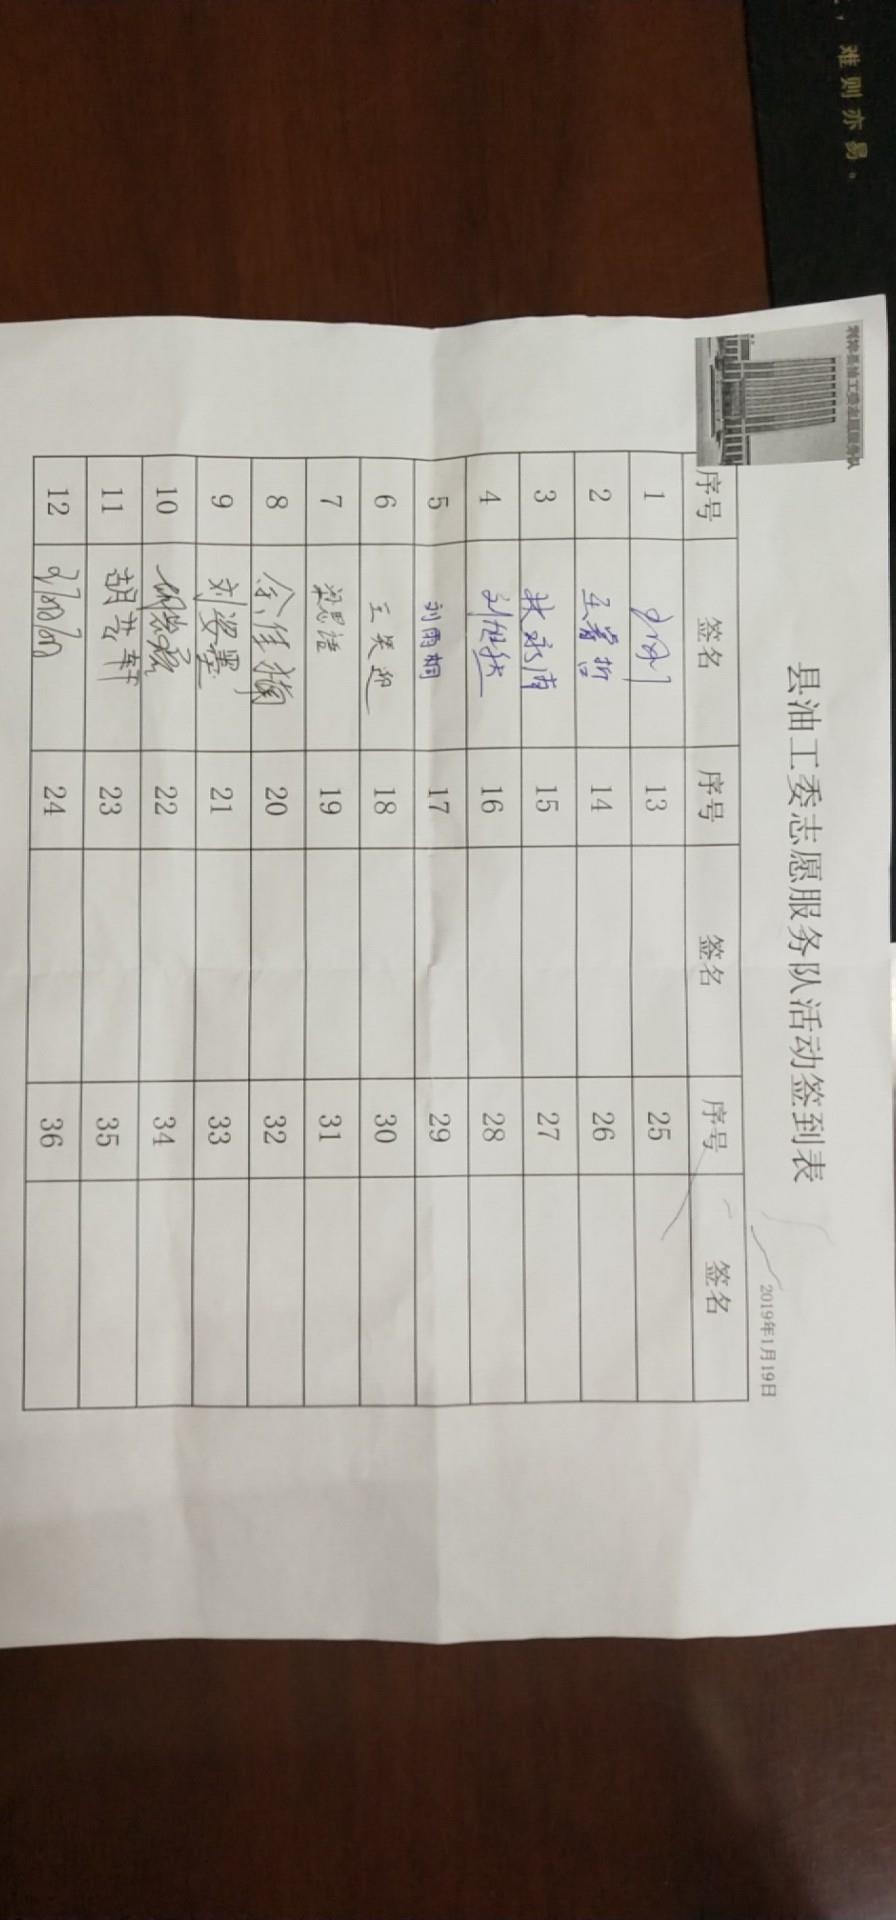 ，难则亦易。
利津县油工委志愿服务队
县油工委志愿服务队活动签到表
2019年1月19日
序号 签名 序号 签名 序号 签名
1 13 25
2 王睿哲 14 26
3 15 27
4 16 28
5 刘雨桐 17 29
6 王笑迎 18 30
7 梁思语 19 31
8 20 32
9 刘姿墨 21 33
10 22 34
11 胡芸轩 23 35
12 24 36